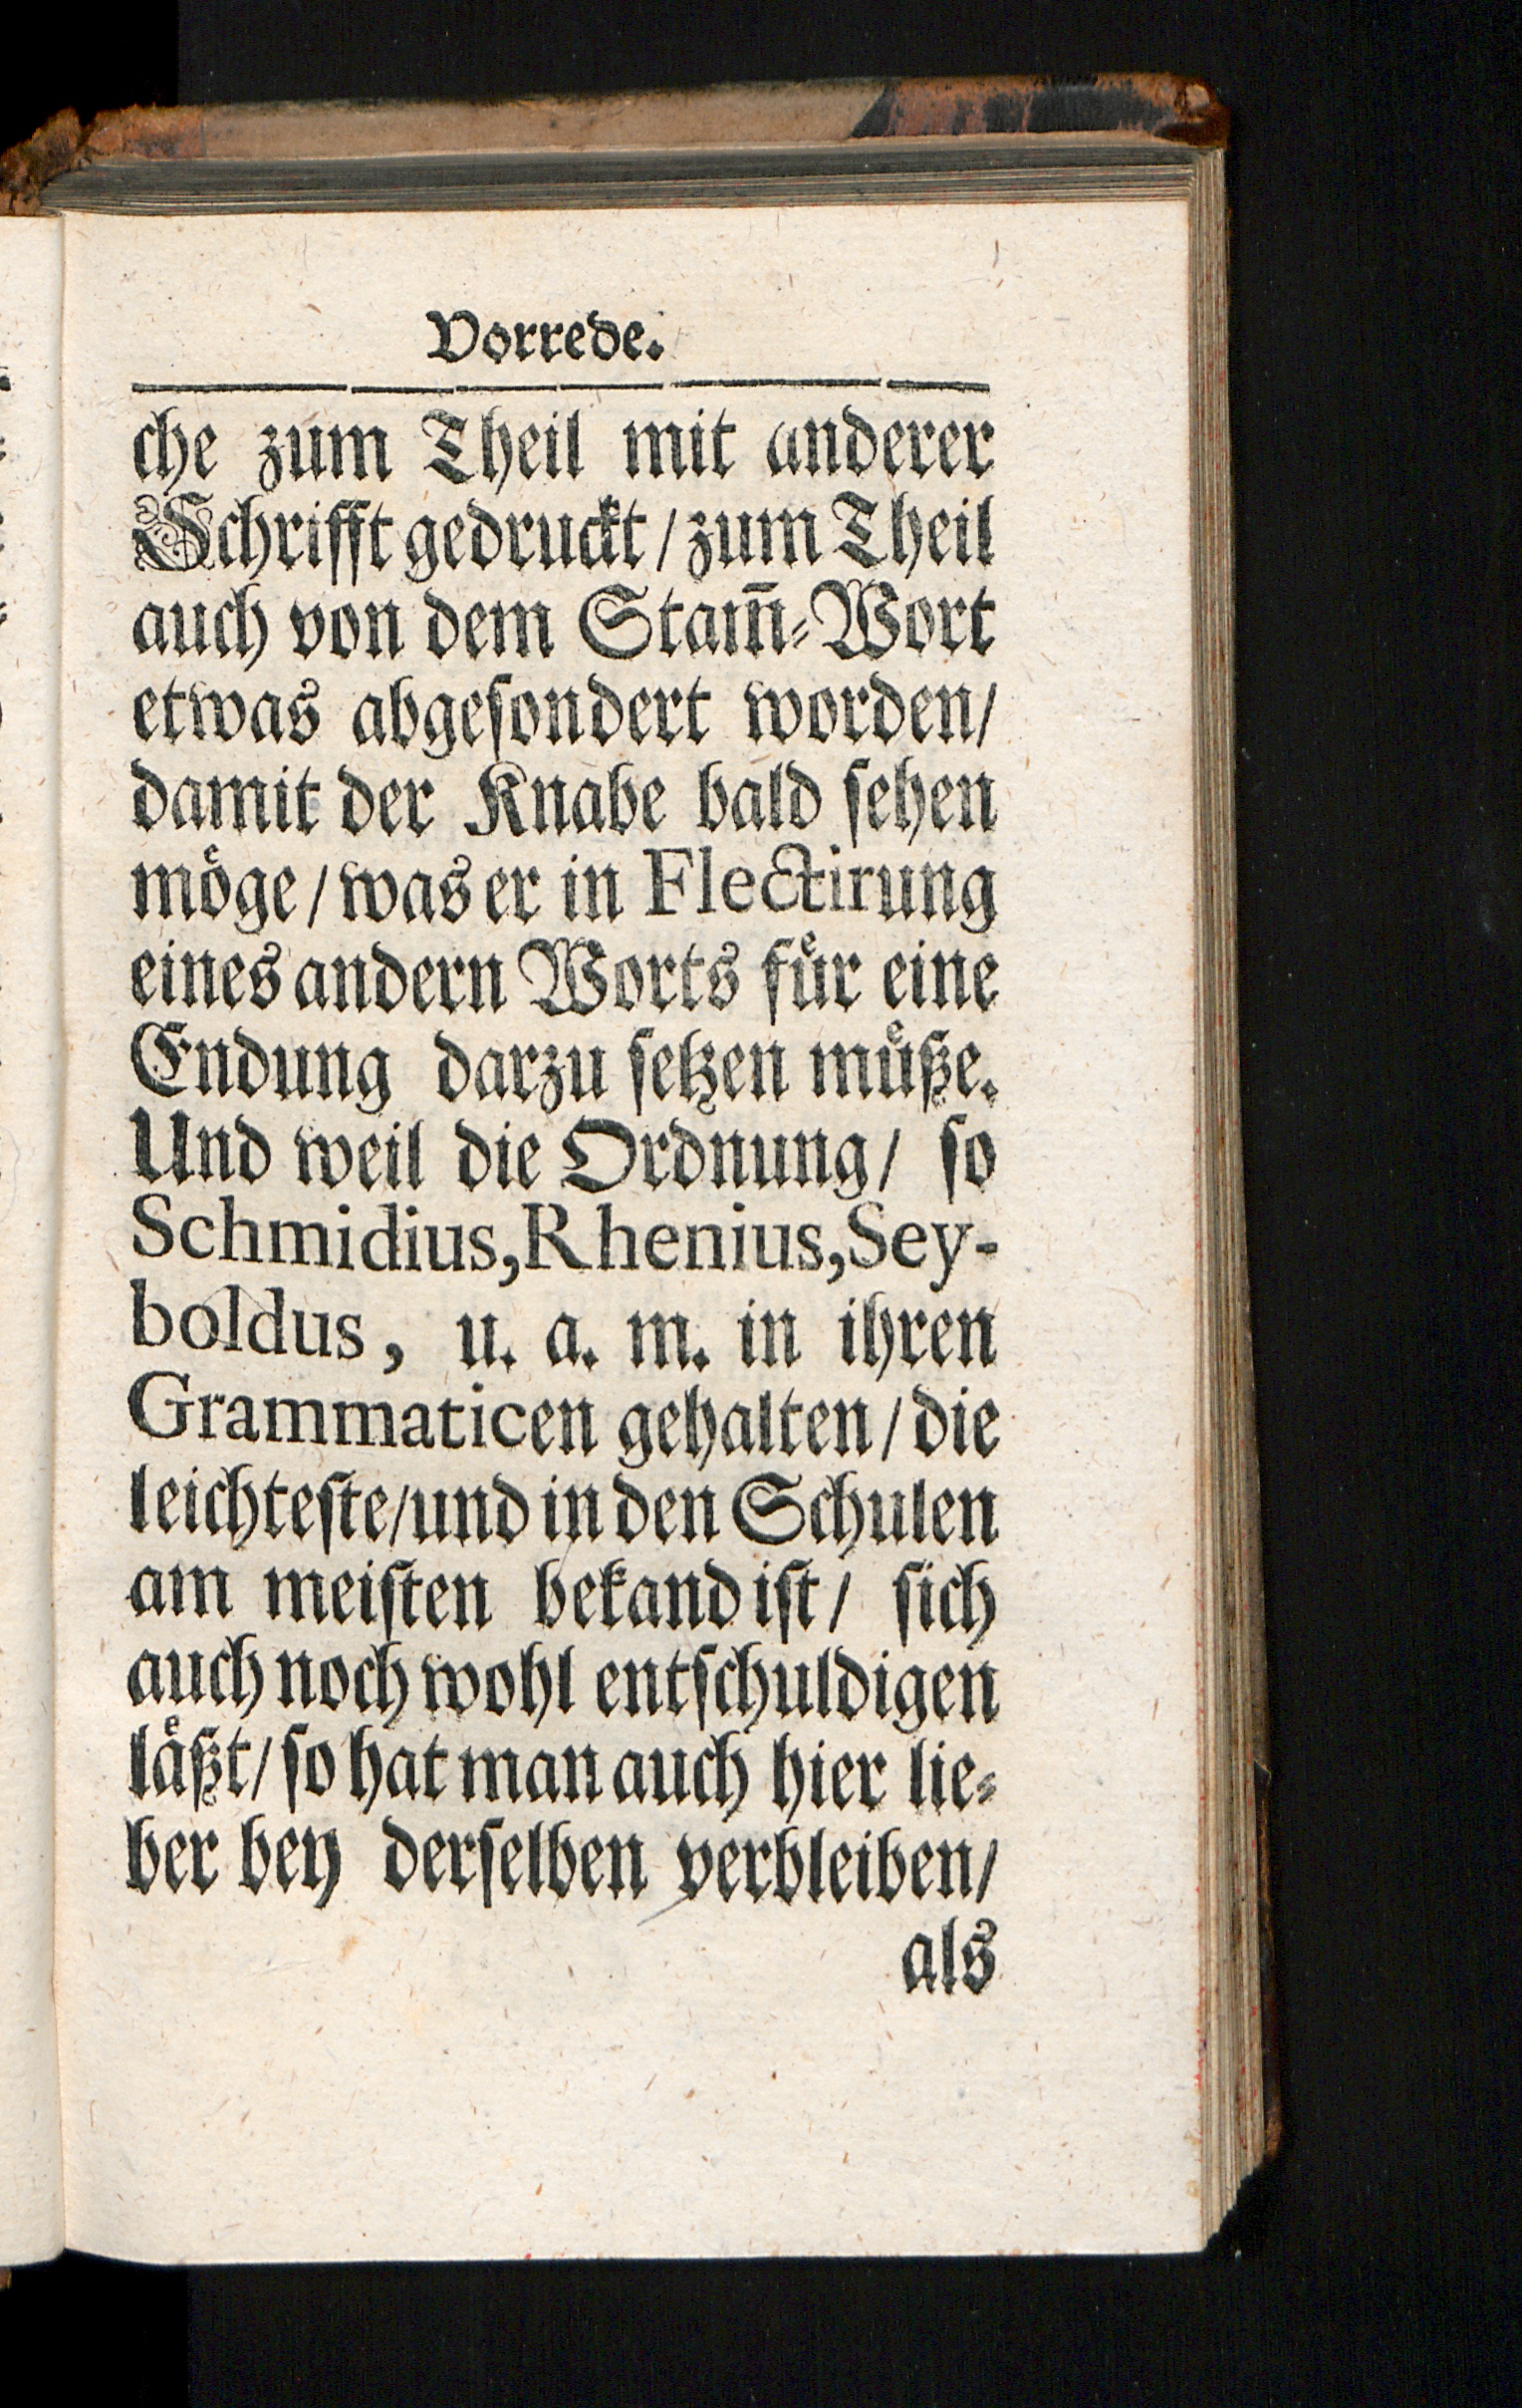 Vorrede.
che zum Theil mit anderer
Schrifft gedruckt / zum Theil
auch von dem Stam̃⸗Wort
etwas abgeſondert worden/
damit der Knabe bald ſehen
moͤge / was er in Flectirung
eines andern Worts fuͤr eine
Endung darzu ſetzen muͤße.
Und weil die Ordnung/ ſo
Schmidius, Rhenius, Sey-
boldus, u. a. m. in ihren
Grammaticen gehalten / die
leichteſte/und in den Schulen
am meiſten bekand iſt/ ſich
auch noch wohl entſchuldigen
laͤßt/ ſo hat man auch hier lie⸗
ber bey derſelben verbleiben/
als